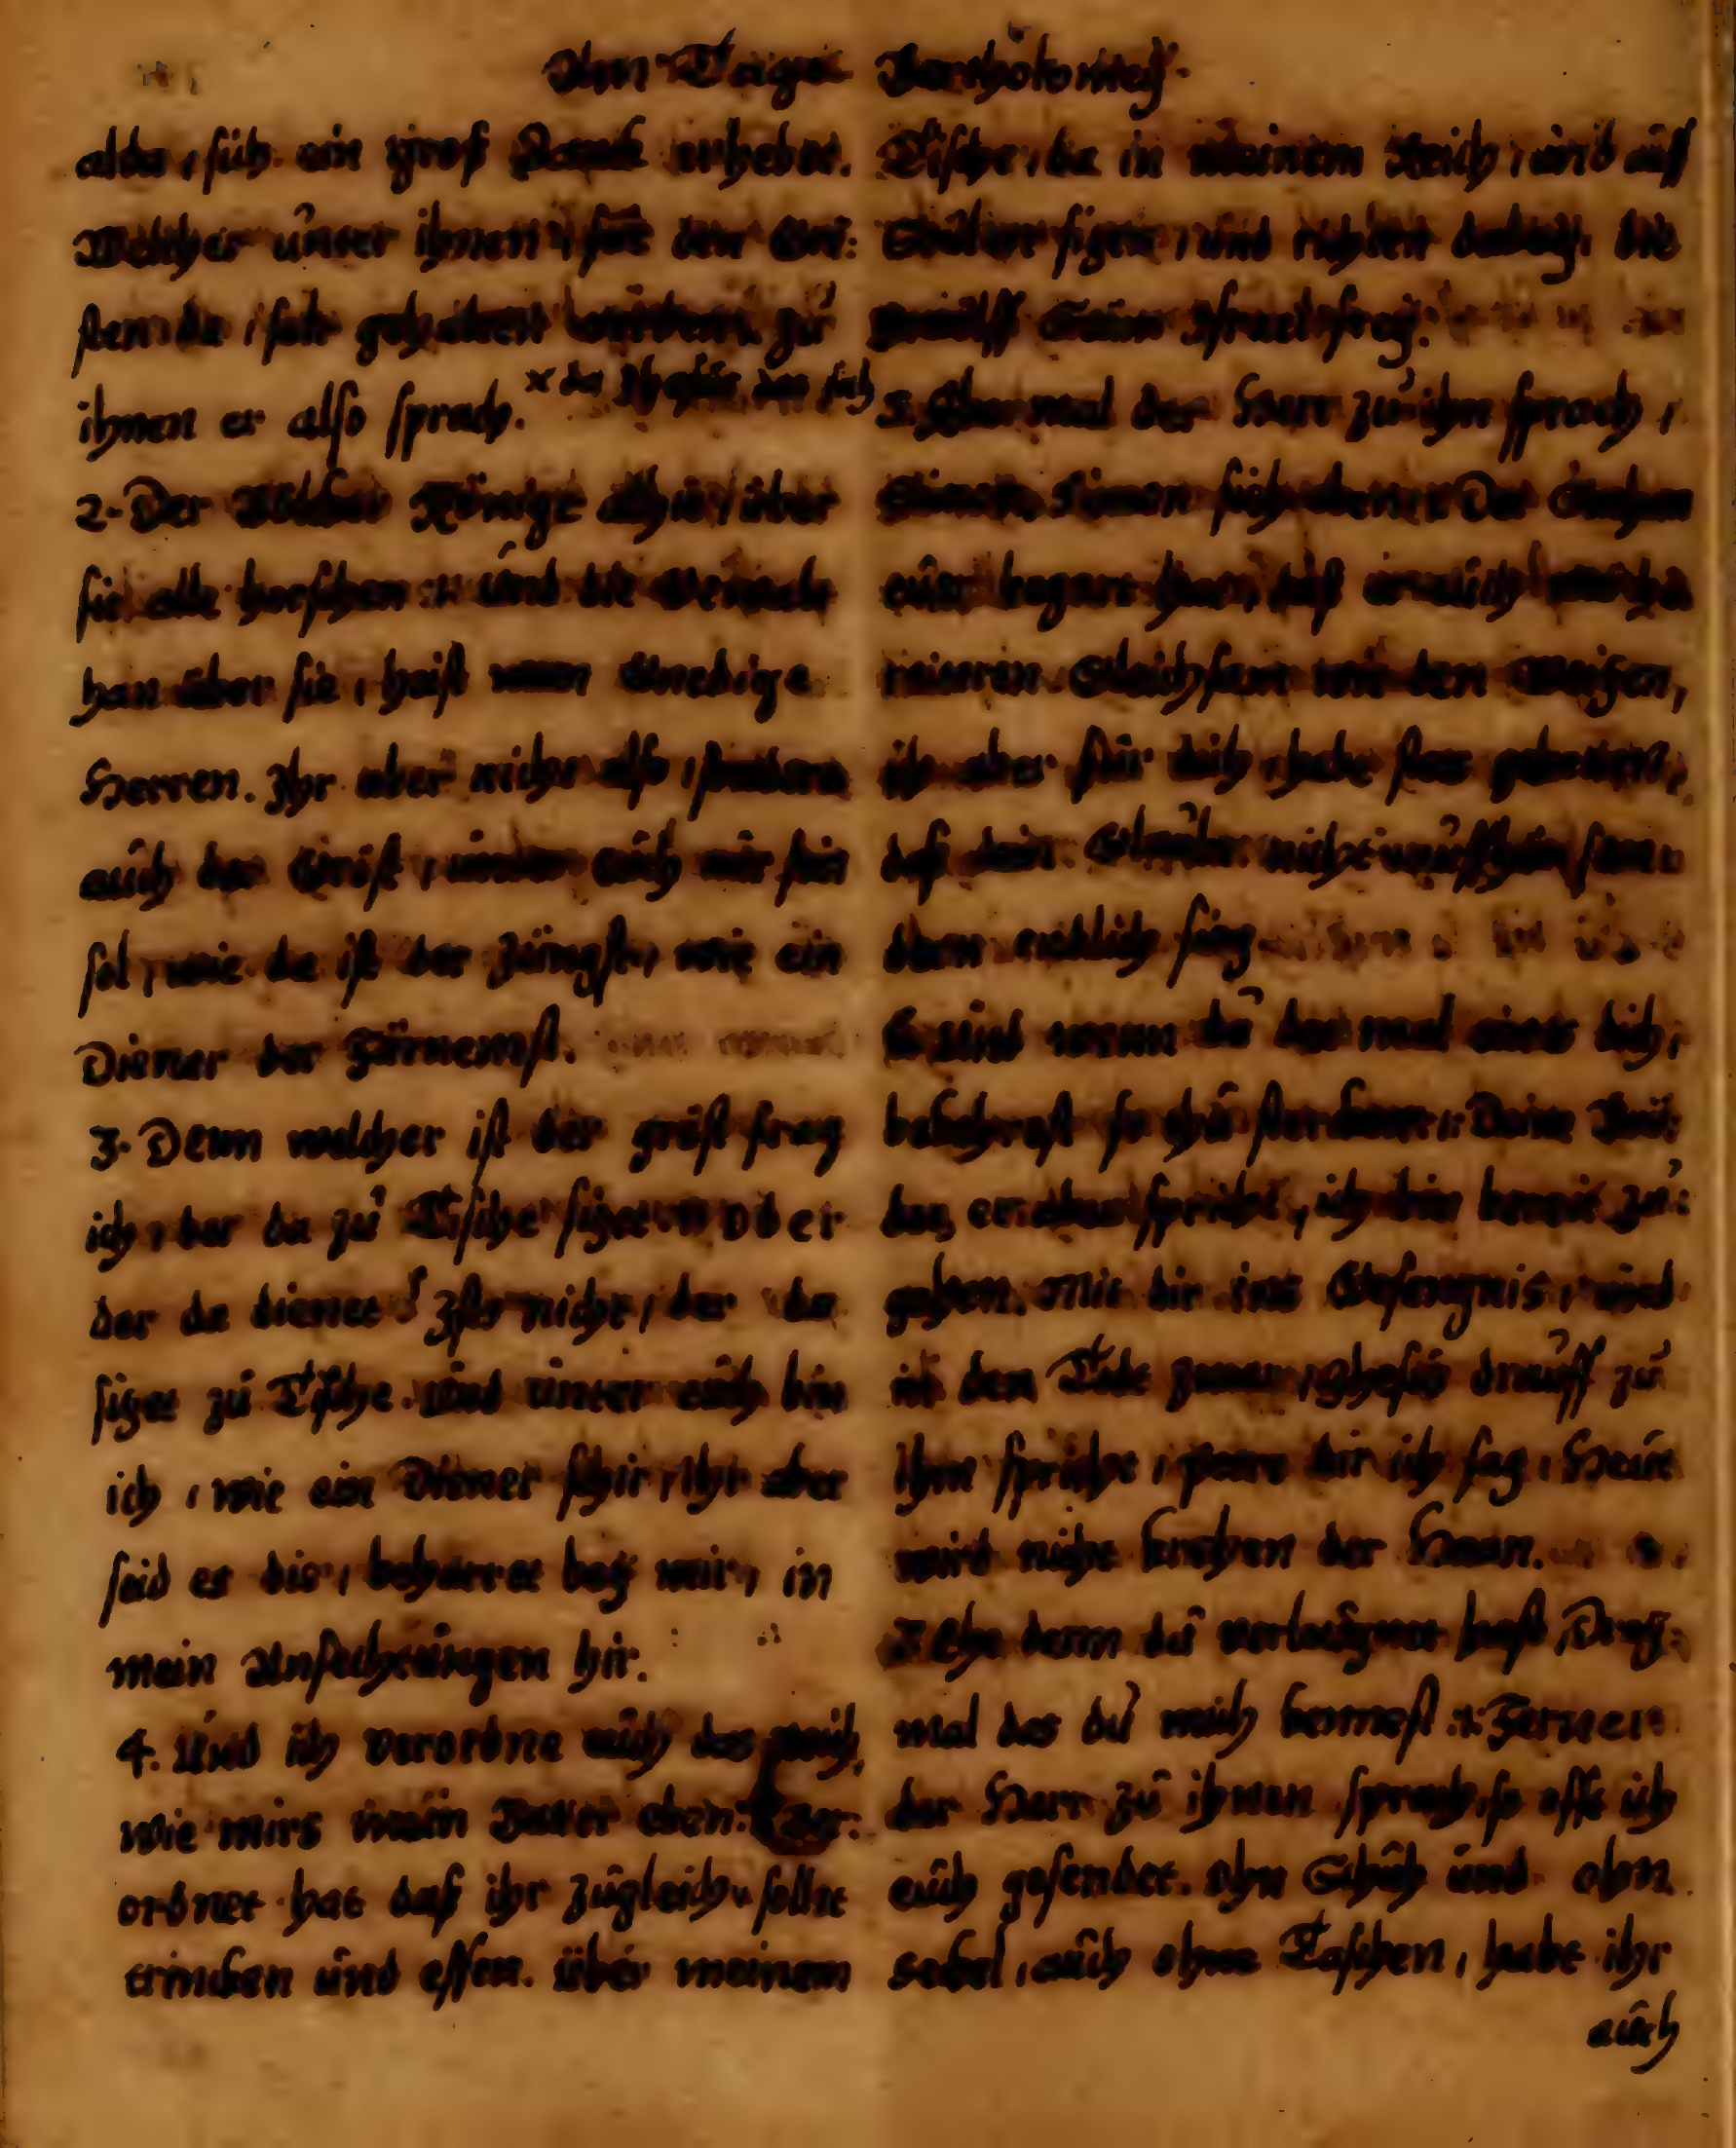 Am Tage Bartholomej.
alda, sich ein groß Zank erhebet.
Welcher unter ihnen, für den Grö:
sten da, solt gehalten werden, zu
ihnen er also sprach. × da Ihesus, das sich
2. Der Völcker Könige alhie, über
sie alle herschen :,: und die Gewalt
han über sie, heist man Gnedige
Herren. Ihr aber nicht also, sondern
auch der Gröst, unter euch mir sein
sol, wie da ist der Jüngste, wie ein
Diener der Fürnemst.
3. Denn welcher ist der gröst frag
ich, der da zu Tische sizet :,: oder
der da dienet? Ists nicht, der da
sizet zu Tische. Und unter euch bin
ich, wie ein Diener schir, ihr aber
seid es die, beharret bey mir, in
mein Anfechtungen hir.
4. Und ich verordne euch das reich,
wie mirs mein Vater eben :,: ver:
ordnet hat daß ihr zugleich, sollt
trincken und essen. über meinem
Tische, da in meinem Reich, und auff
Stülen sizen, und richten dabey, die
zwölff Stäm Israels frey.
5. Aber mal der Herr zu ihm sprach,
Simon, Simon sich eben :,: Der Sathan
euer begert hat, daß er euch möchte
reiteren. Gleichsam wie den Weizen,
ich aber für dich, habe stez gebeten,
daß dein Glaube nicht auffhör son:
dern endlich sieg
6. Und wenn du der mal eines dich,
bekehrest so thu stercken :,: Deine Brü:
der, er aber spricht, ich bin bereit zu:
gehen. Mit dir ins Gefengnis, und
in den Tode zwar, Ihesus drauff zu
ihm spricht, Petre dir ich sag, Heut
wird nicht krehen der Haan.
7. Ehe denn du verleugnet hast, Drey:
mal das du mich kennest :,: Ferner
der Herr zu ihnen sprach, so offt ich
euch gesendet. Ohn Schuh und ohn
sekel, auch ohne Taschen, habt ihr
auch